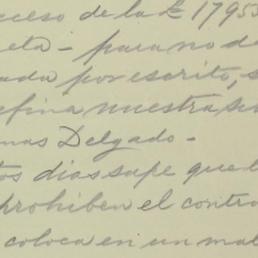 ceso de la 17953
eta - para no d
ada por escrito, s
efina nuestra
mas Delgado -
os dias supe que l
prohiben el contro
coloca en un mal